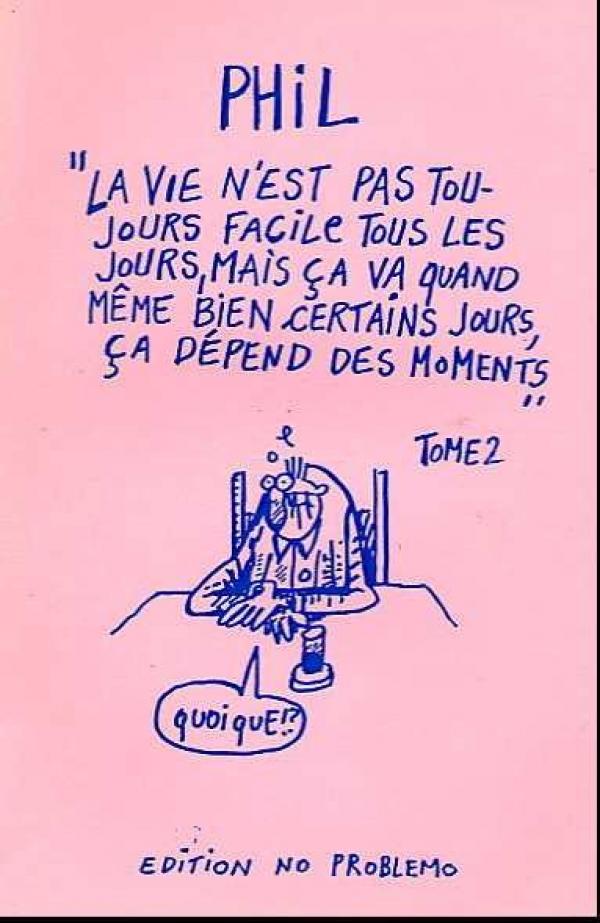 PHiL
"LA VIE N'EST PAS TOU-
JOURS FACILE TOUS LES
JOURS, MAIS ÇA VA QUAND
MÊME BIEN CERTAINS JOURS,
ÇA DÉPEND DES MOMENTS
"
TOME 2
QUOIQUE!?
EDITION NO PROBLEMO